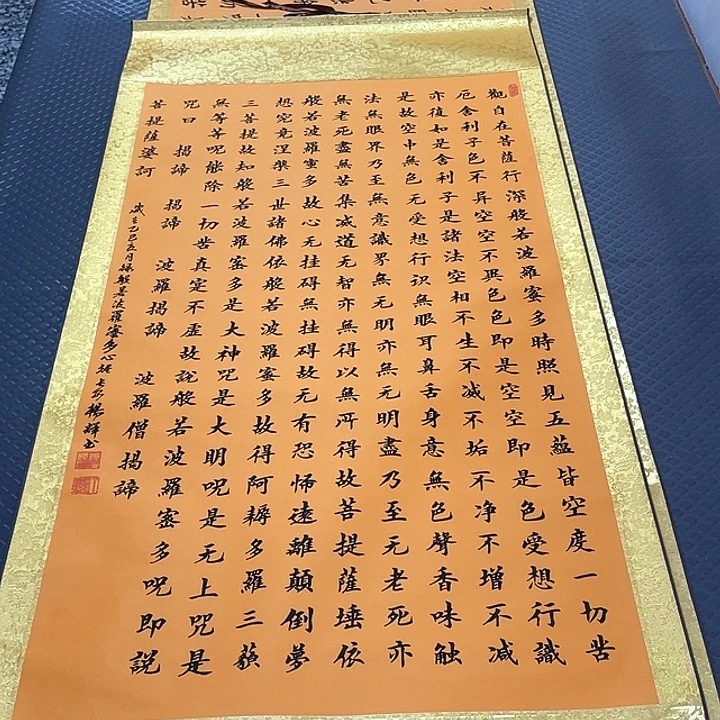 觀自在菩薩行深般若波羅蜜多時照見五蘊皆空度一切苦
厄舍利子色不异空空不異色色即是空空即是色受想行識
亦復如是舍利子是諸法空相不生不滅不垢不净不增不减
是故空中無色无受想行识無眼耳鼻舌身意無色聲香味触
法無眼界乃至無意識界無无明亦無无明盡乃至无老死亦
無老死盡無苦集滅道无智亦無得以無所得故菩提薩埵依
般若波羅蜜多故心无挂碍無挂碍故无有恐怖遠離顛倒夢
想究竟涅槃三世諸佛依般若波羅蜜多故得阿耨多羅三藐
三菩提故知般若波羅蜜多是大神咒是大明呪是无上咒是
無等等呪能除一切苦真实不虚故說般若波羅蜜多呪即説
咒曰 揭諦 揭諦 波羅揭諦 波羅僧揭諦
菩提薩婆訶
歲在乙巳月録般若波羅蜜多心經楊輝书